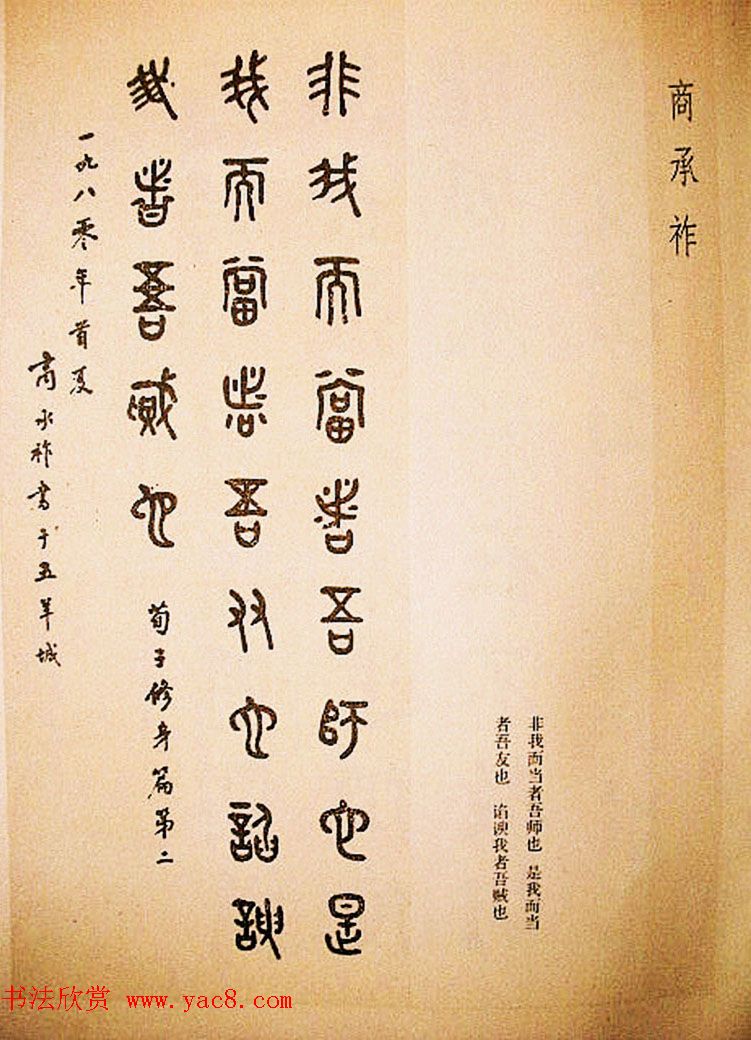 商承祚
非我而当者吾师也 是我而当
者吾友也 谄谀我者吾贼也
非我而當者吾師也是
我而當者吾友也諂諛
我者吾賊也 荀子修身篇第二
一九八零年首夏
商承祚書于五羊城
书法欣赏 www.yac8.com